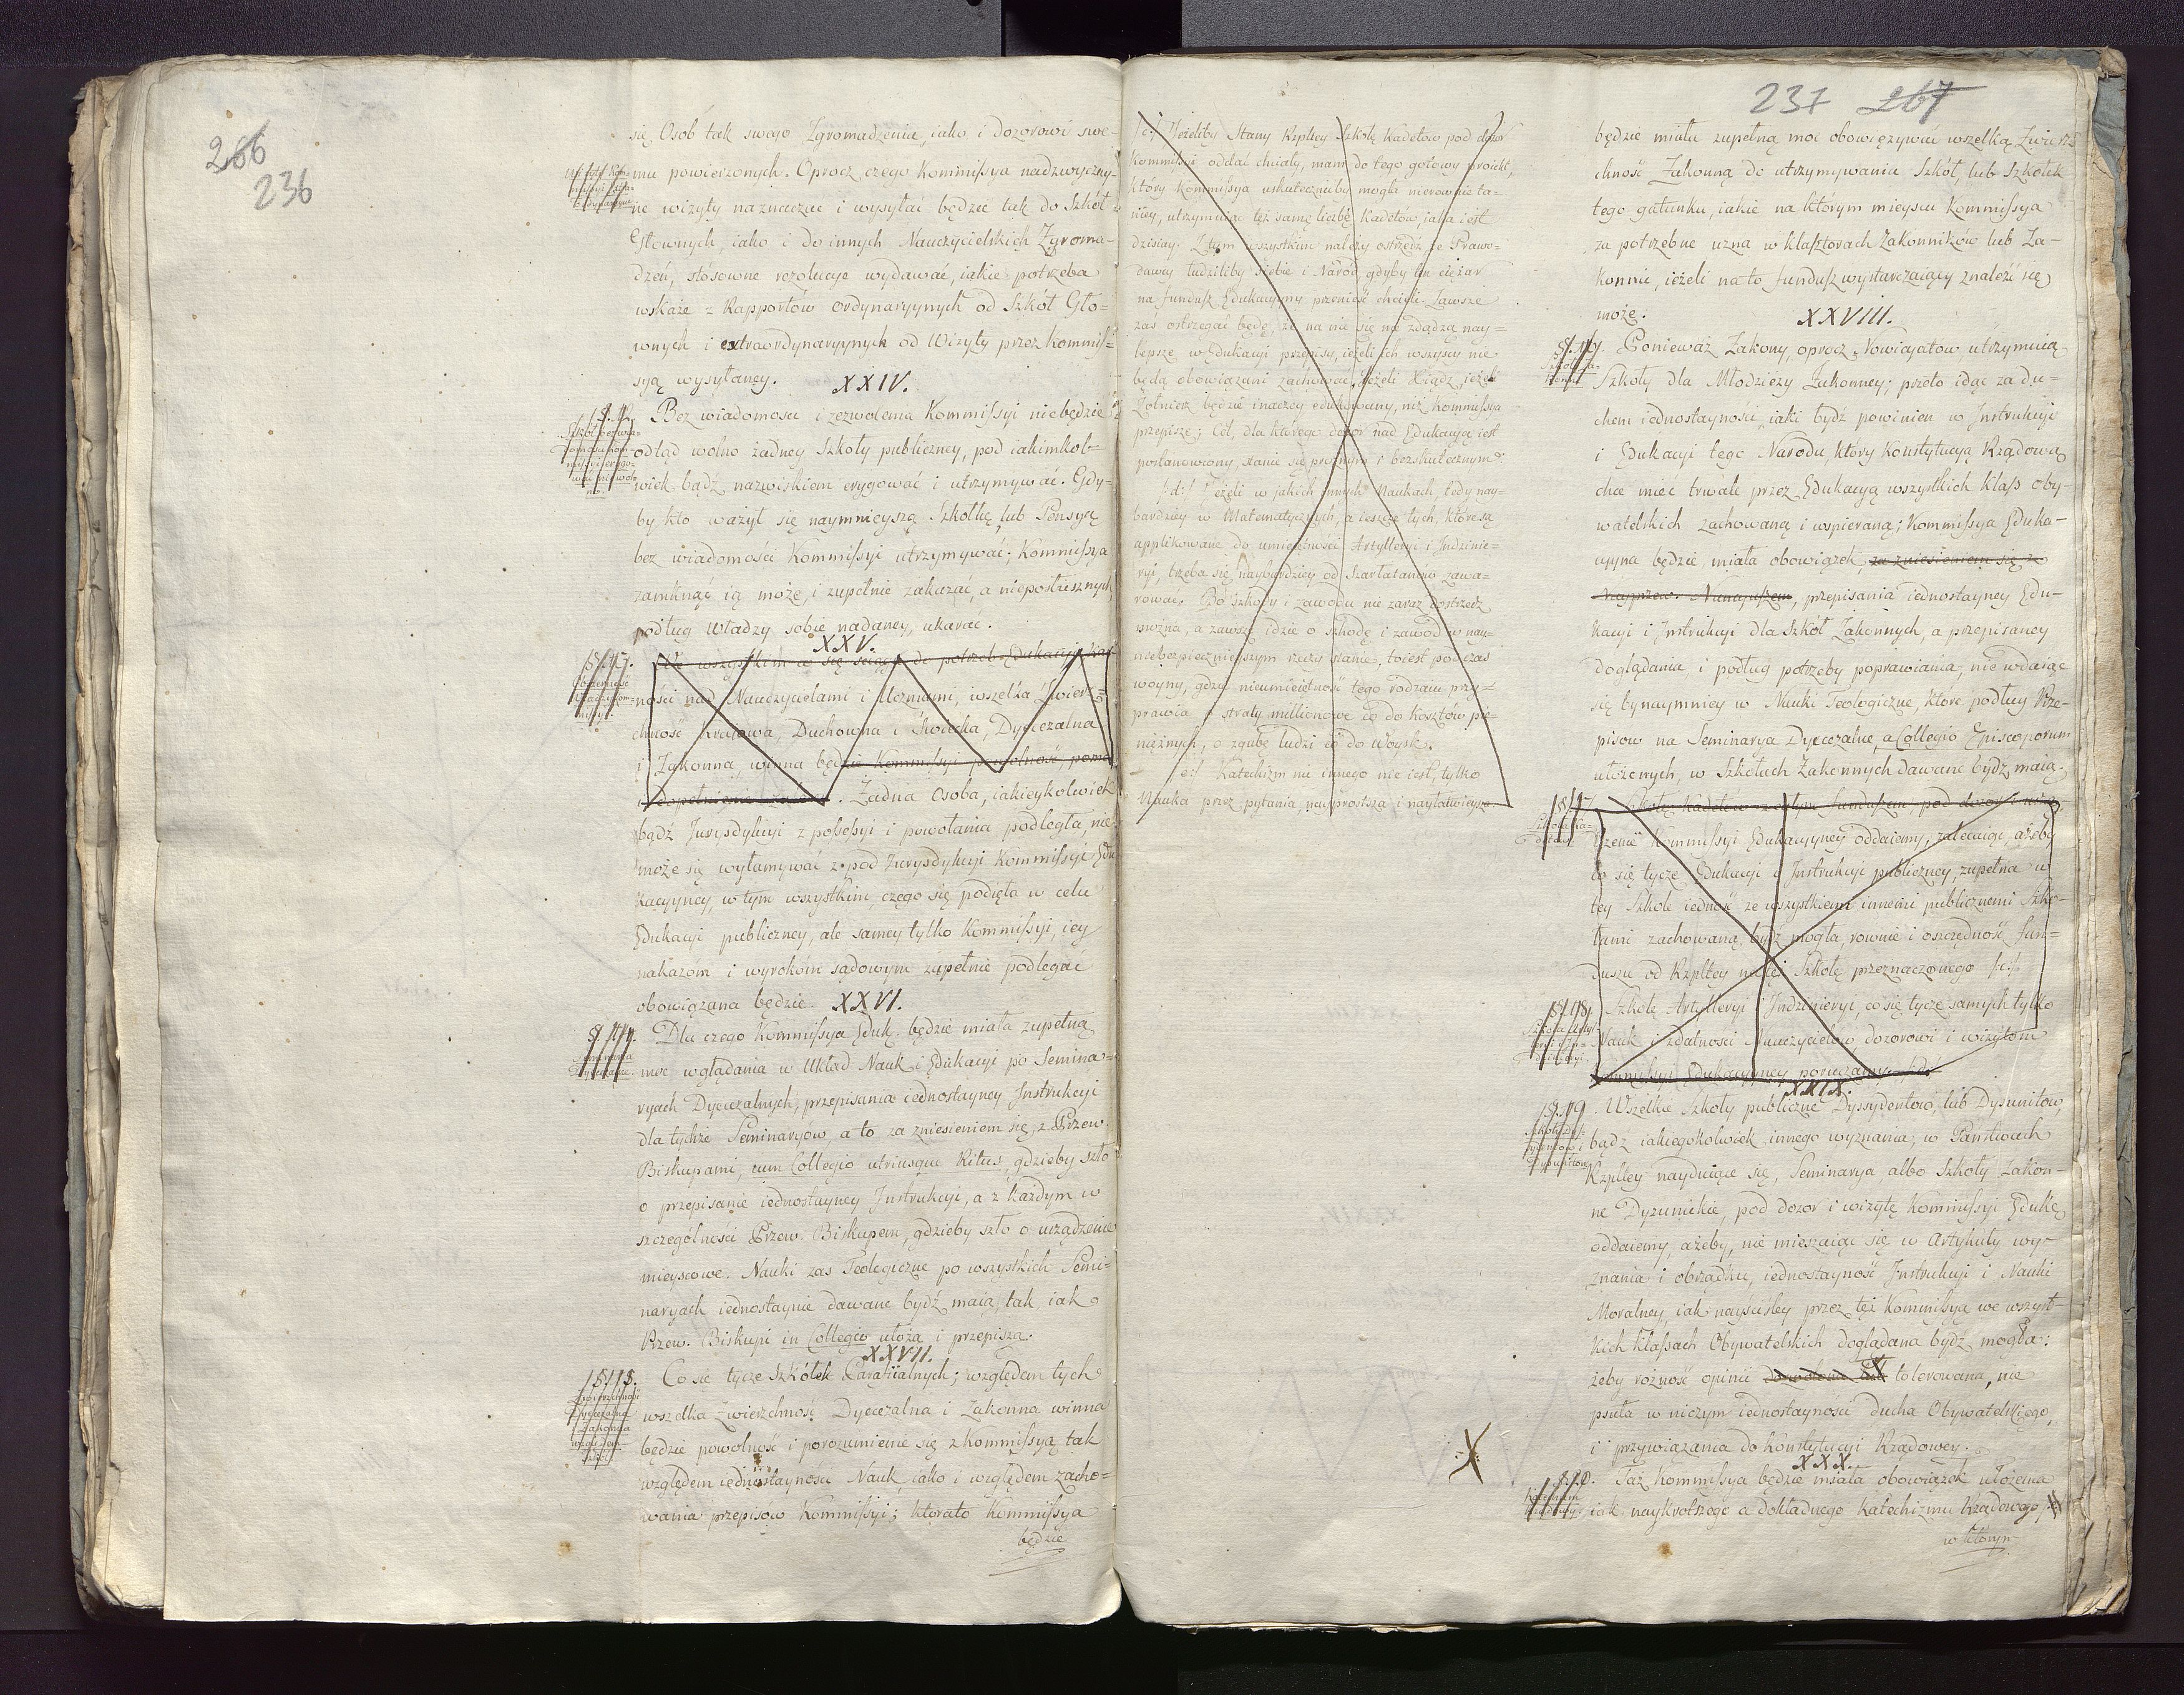 266
236
się Osób tak swego Zgromadzenia, iako i dozorowi swe-
mu powierzonych. Oprocz czego Kommissya nadzwyczay-
ne wizyty naznaczac i wysyłać będzie tak do Szkół
Głownych, iako i do innych Nauczycielskich Zgroma-
dzeń, stósowne rezolucye wydawać, iakie potrzeba
wskaże z Rapportów ordynaryynych od Szkół Gło-
wnych i extraordynaryynych od Wizyty przez Kommis-
syą wysyłaney.
XXIV.
Bez wiadomosci i zezwolenia Kommissyi nie będzie
odtąd wolno żadney Szkoły publiczney, pod iakimkol-
wiek bądź nazwiskiem erygować i utrzymywać. Gdy-
by kto ważył się naymnieyszą Szkołkę lub Pensyą
bez wiadomości Kommissyi utrzymywać; Kommissya
zamknąć ią może, i zupełnie zakazać, a niepostusznych
podług Władzy sobie nadaney, ukarać.
XXV.
We wszystkim co się ściąga do potrzeb Edukacyi
ności nad Nauczycielami i Uczniami, wszelka Zwierz-
chność Kraiowa, Duchowna i Swiecka, Dyecezalna
i Zakonna winna będzie Kommissyi powolność pomoc
. Żadna Osoba, iakieykolwiek
bądź Jurysdykcyi z possessyi i powołania podległa, nie
może się wyłamywać z pod Jurysdykcyi Kommissyi Edu
kacyyney, w tym wszystkim, czego się podięła w celu
Edukacyi publiczney, ale samey tylko Kommissyi, iey
nakazóm i wyrokóm sądowym zupełnie podlegać
obowiązana będzie.
XXVI.
Dla czego Kommissya Eduk. będzie miała zupełną
moc wglądania w Układ Nauk i Edukacyi po Semina-
ryach Dyecezalnych, przepisania iednostayney Instrukcyi
dla tychże Seminaryów, a to za zniesieniem się z Przew.
Biskupami, cum Collegio utriusque Ritus, gdzieby szło
o przepisanie iednostayney Instrukcyi, a z każdym w
szczególności Przew. Biskupem, gdzieby szło o urządzenie
mieyscowe. Nauki zas Teologiczne po wszystkich Semi-
naryach iednostaynie dawane bydź maią, tak iak
Przew. Biskupi in Collegio ułożą i przepiszą.
XXVII.
Co się tycze Szkółek Parafiialnych; względem tych
wszelka Zwierzchność Dyecezalna i Zakonna winna
będzie powolność i porozumienie się z Kommissyą tak
względem iednostaynosci Nauk, iako i względem zacho-
wania przepisów Kommissyi; ktorato Kommissya
będzie
237 267
/:c:/ Jeżeliby Stany Rzpltey Szkołę Kadetów pod dozor
Kommissyi oddać chciały, mam do tego gotowy proiekt,
który Kommissya uskutecznićby mogła nierownie ta-
niey, utrzymuiąc też samę liczbę Kadetów, iaka iest
dzisiay. Z tym wszystkim należy ostrzedz, że Prawo-
dawcy łudziliby siebie i Naród, gdyby ten ciężar
na fundusz Edukacyyny przenieść chcieli. Zawsze
zaś ostrzegać będę, że na nic się nie zdadzą nay-
lepsze w Edukacyi przepisy, ieżeli ich wszyscy nie
będą obowiązani zachować. Jeżeli Xiądz, ieżeli
Żołnierz będzie inaczey edukowany, niż Kommissya
przepisze; Cel, dla którego dozor nad Edukacyą iest
postanowiony, stanie się prożnym i bezskutecznym.
/:d:/ Jeżeli w jakich innych Naukach, tedy nay-
bardziey w Matematycznych, a ieszcze tych, które są
applikowane do umieiętności Artylleryi i Indzinie-
ryi, trzeba się naybardziey od szarlatanów zawa-
rować. Bo szkody i zawodu nie zaraz dostrzedz
można, a zawsze idzie o szkodę i zawod w nay-
niebezpiecznieyszym rzeczy stanie, to iest podczas
woyny, gdzie nieumieiętność tego rodzaiu przy-
prawia o straty millionowe co do kosztów pie-
niężnych, o zgubę ludzi co do Woysk.
/:e:/ Katechizm nic innego nie iest, tylko
Nauka przez pytania nayprostsza i nayłatwieysza.
będzie miała zupełną moc obowięzywać wszelką Zwierz-
chność Zakonną do utrzymywania Szkół, lub Szkółek
tego gatunku, iakie na którym mieyscu Kommissya
za potrzebne uzna w klasztorach Zakonników lub Za-
konnic, ieżeli na to fundusz wystarczaiący znaleźć się
może.
XXVIII.
Ponieważ Zakony, oprocz Nowicyatow utrzymuią
Szkoły dla Młodzieży Zakonney; przeto idąc za du-
chem iednostayności, iaki bydź powinien w Instrukcyi
i Edukacyi tego Narodu, który Konstytucyą Rządową
chce mieć trwale przez Edukacyą wszystkich klass oby-
watelskich zachowaną i wspieraną; Kommissya Eduka-
cyyna będzie miała obowiązek, za zniesieniem się z
Nayprzew. Nuncyuszem, przepisania iednostayney Edu-
kacyi i Instrukcyi dla Szkół Zakonnych, a przepisaney
doglądania i podług potrzeby poprawiania, nie wdaiąc
się bynaymniey w Nauki Teologiczne, które podług Prze-
pisow na Seminarya Dyecezalne, a Collegio Episcoporum
ułożonych, w Szkołach Zakonnych dawane bydź maią.
Szkołę Kadetow z całym funduszem, pod dozor i urzą-
dzenie Kommissyi Edukacyyney oddaiemy, zalecaiąc, ażeby
co się tycze Edukacyi i Instrukcyi publiczney, zupełna w
tey Szkole iedność ze wszystkiemi innemi publicznemi Szko-
łami zachowaną bydź mogła, rownie i oszczędność fun-
duszu od Rzpltey na tę Szkołę przeznaczonego /:c:/
Szkołę Artylleryi i Indzinieryi, co się tycze samych tylko
Nauk i zdatności Nauczycielow, dozorowi i wizytom
Kommissyi Edukacyyney poruczamy. /:d:/
XXIX.
§.19. Wszelkie Szkoły publiczne Dyssydentow, lub Dysunitow,
bądź iakiegokolwiek innego wyznania, w Państwach
Rzpltey nayduiące się, Seminarya, albo Szkoły Zakon-
ne Dyzunickie, pod dozor i wizytę Kommissyi Eduk.
oddaiemy, ażeby, nie mieszaiąc się w Artykuły wy-
znania i obrządku, iednostayność Instrukcyi i Nauki
Moralney, iak nayściśley przez też Kommissyą we wszyst-
kich klassach Obywatelskich doglądana bydź mogła:
żeby rożność opinii tolerowana, nie
psuła w niczym iednostayności ducha Obywatelskiego,
i przywiązania do Konstytucyi Rządowey.
XXX.
Taż Kommissya będzie miała obowiązek ułożenia
iak naykrotszego a dokładnego Katechizmu Rządowego,
w którym